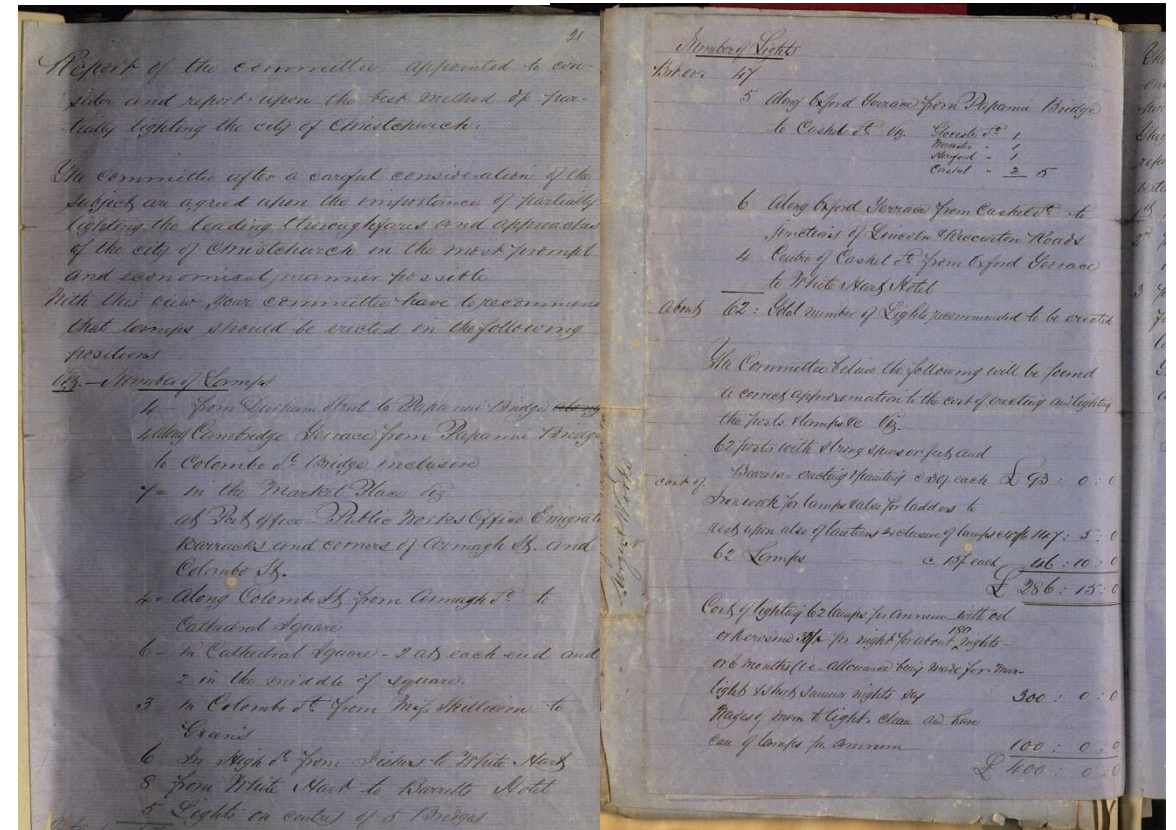 21
Report of the committee appointed to con-
sider and report upon the best method of par-
tially lighting the city of Christchurch.
The Committee after a careful consideration of the
subject are agreed upon the importance of partially
lighting the leading thoroughfares and approaches
of the city of Christchurch in the most prompt
and economical manner possible
With this view your committee have to recommend
that lamps should be erected in the following
positions
Viz. — Number of Lamps
4 - from Durham Street to Papanui Bridge along
4 along Cambridge Terrace from Papanui Bridge
to Colombo St. Bridge inclusive
7 = in the Market Place Viz
at Post office - Public Works Office Emigratn
Barracks and corners of Armagh St. and
Colombo St.
4 = Along Colombo St from Armagh St. to
Cathedral Square
6 - in Cathedral Square - 2 at each end and
2 in the middle of square.
3 in Colombo St. from to
6 In High St. from to White Hart
8 from White Hart to Barretts Hotel
5 Lights on centres of 5 Bridges
Number of Lights
Brt over 47
5 Along Oxford Terrace from Papanui Bridge
to Cashel St. Viz Gloucester St. 1
Worcester " 1
Hereford " 1
Cashel " 2 5
6 Along Oxford Terrace from Cashel St. to
junctions of Lincoln & Riccarton Roads
4 Centre of Cashel St. from Oxford Terrace
to White Hart Hotel
About 62: Total number of Lights recommended to be erected
The Committee believe the following will be found
a correct approximation to the cost of erecting and lighting
the posts & lamps &c Viz.
62 posts with strong spurs or feet and
cost of erecting & painting @ 30/ each £ 93 : 0 : 0
Ironwork for lamps & also for ladders to
rest upon also of lanterns exclusive of lamps 147 : 5 : 0
62 Lamps @ 15/ each 46 : 10 : 0
£ 286 : 15 : 0
Cost of lighting 62 lamps per annum with oil
or Kerosine per night for about 180 nights -
or 6 months (i.e. allowance being made for moon-
light & short summer nights say 300 : 0 : 0
Wages of man to light, clean and have
care of lamps per annum 100 : 0 : 0
£ 400 : 0 : 0